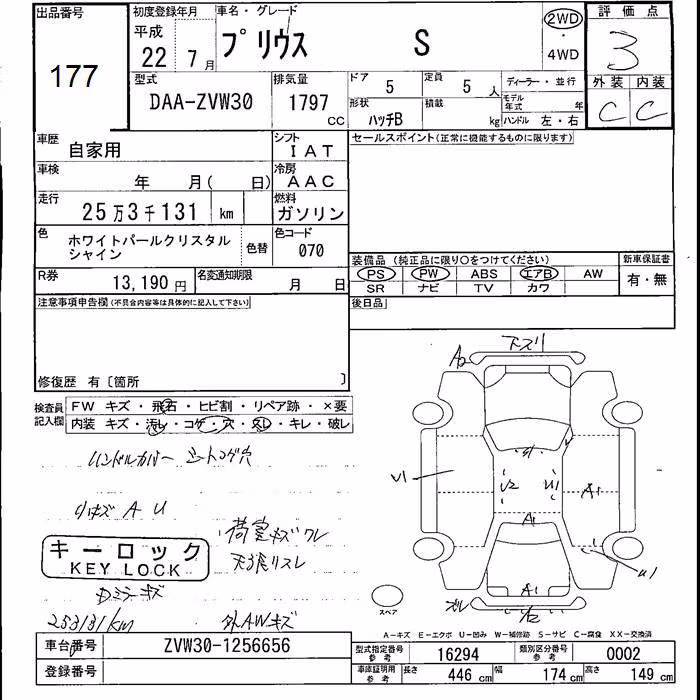 出品番号
177
初度登録年月
平成
22 7 月
車名・グレード
プリウス S
2WD
・
4WD
評価点
3
型式
DAA-ZVW30
排気量
1797 CC
ドア 5
定員 5 人
形状 ハッチB
積載 kg
ディーラー・並行
モデル年式 年
ハンドル 左・右
外装 内装
C C
車歴 自家用
シフト IAT
車検 年 月( 日)
冷房 AAC
走行 25万3千131 km
燃料 ガソリン
色 ホワイトパールクリスタル
シャイン
色替
色コード 070
R券 13,190 円
名変通知期限 月 日
セールスポイント(正常に機能するものに限ります)
装備品 (純正品に限り○をつけてください)
PS PW ABS エアB AW
SR ナビ TV カワ
新車保証書
有・無
注意事項申告欄(不具合内容等は具体的に記入して下さい)
後日品
修復歴 有〔箇所 〕
検査員記入欄
FW キズ・飛石・ヒビ割・リペア跡・×要
内装 キズ・汚レ・コゲ・穴・欠レ・キレ・破レ
ハンドルカバー シートコゲ穴
小キズ A U
荷室キズワレ
キーロック
KEY LOCK
天張リスレ
ミラーキズ
253131km
外AWキズ
下ズリ
A2
U1
U2
U1
A1
A1
A1
U1
ズレ
スペア
A-キズ E-エクボ U-凹み W-補修跡 S-サビ C-腐食 XX-交換済
車台番号 ZVW30-1256656
登録番号
型式指定番号 参考 16294
類別区分番号 参考 0002
車庫証明用 参考 長さ 446 cm 幅 174 cm 高さ 149 cm